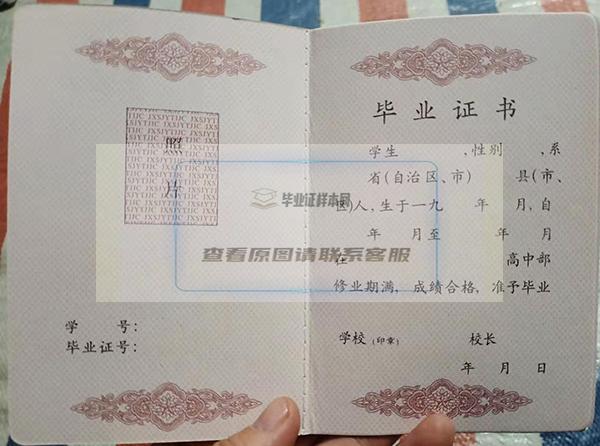 TJC JXSJYTJJC JXS
JYTJJC JXSJYTJJC
照
片
学 号：
毕业证号：
毕业证书
学生 ，性别 ，系
省(自治区、市) 县(市、
区)人，生于一九 年 月，自
年 月至 年 月
在 高中部
修业期满，成绩合格，准予毕业
学校(印章) 校长
年 月 日
毕业证样本网
查看原图请联系客服